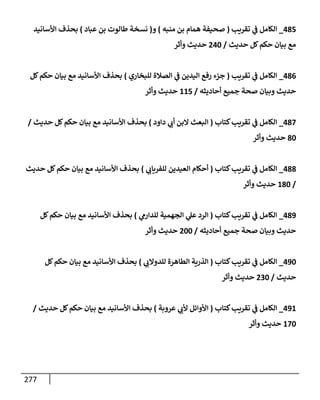 485_ الكامل في تقريب ( صحيفة همام بن منبه ) و( نسخة طالوت بن عباد ) بحذف الأسانيد
مع بيان حكم كل حديث / 240 حديث وأثر
486_ الكامل في تقريب ( جزء رفع اليدين في الصلاة للبخاري ) بحذف الأسانيد مع بيان حكم كل
حديث وبيان صحة جميع أحاديثه / 115 حديث وأثر
487_ الكامل في تقريب كتاب ( البعث لابن أبي داود ) بحذف الأسانيد مع بيان حكم كل حديث /
80 حديث وأثر
488_ الكامل في تقريب كتاب ( أحكام العيدين للفريابي ) بحذف الأسانيد مع بيان حكم كل حديث
/ 180 حديث وأثر
489_ الكامل في تقريب كتاب ( الرد علي الجهمية للدارمي ) بحذف الأسانيد مع بيان حكم كل
حديث وبيان صحة جميع أحاديثه / 200 حديث وأثر
490_ الكامل في تقريب كتاب ( الذرية الطاهرة للدولابي ) بحذف الأسانيد مع بيان حكم كل
حديث / 230 حديث وأثر
491_ الكامل في تقريب كتاب ( الأوائل لأبي عروبة ) بحذف الأسانيد مع بيان حكم كل حديث /
170 حديث وأثر
277